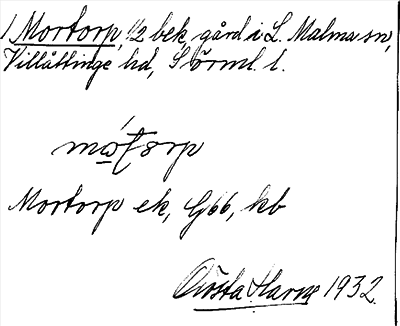 1 Mortorp, 1/2 bek. gård i L. Malma sn,
Villåttinge hd, Sörml. l.
Mortorp ek, G66, kb
Gösta Harne 1932.